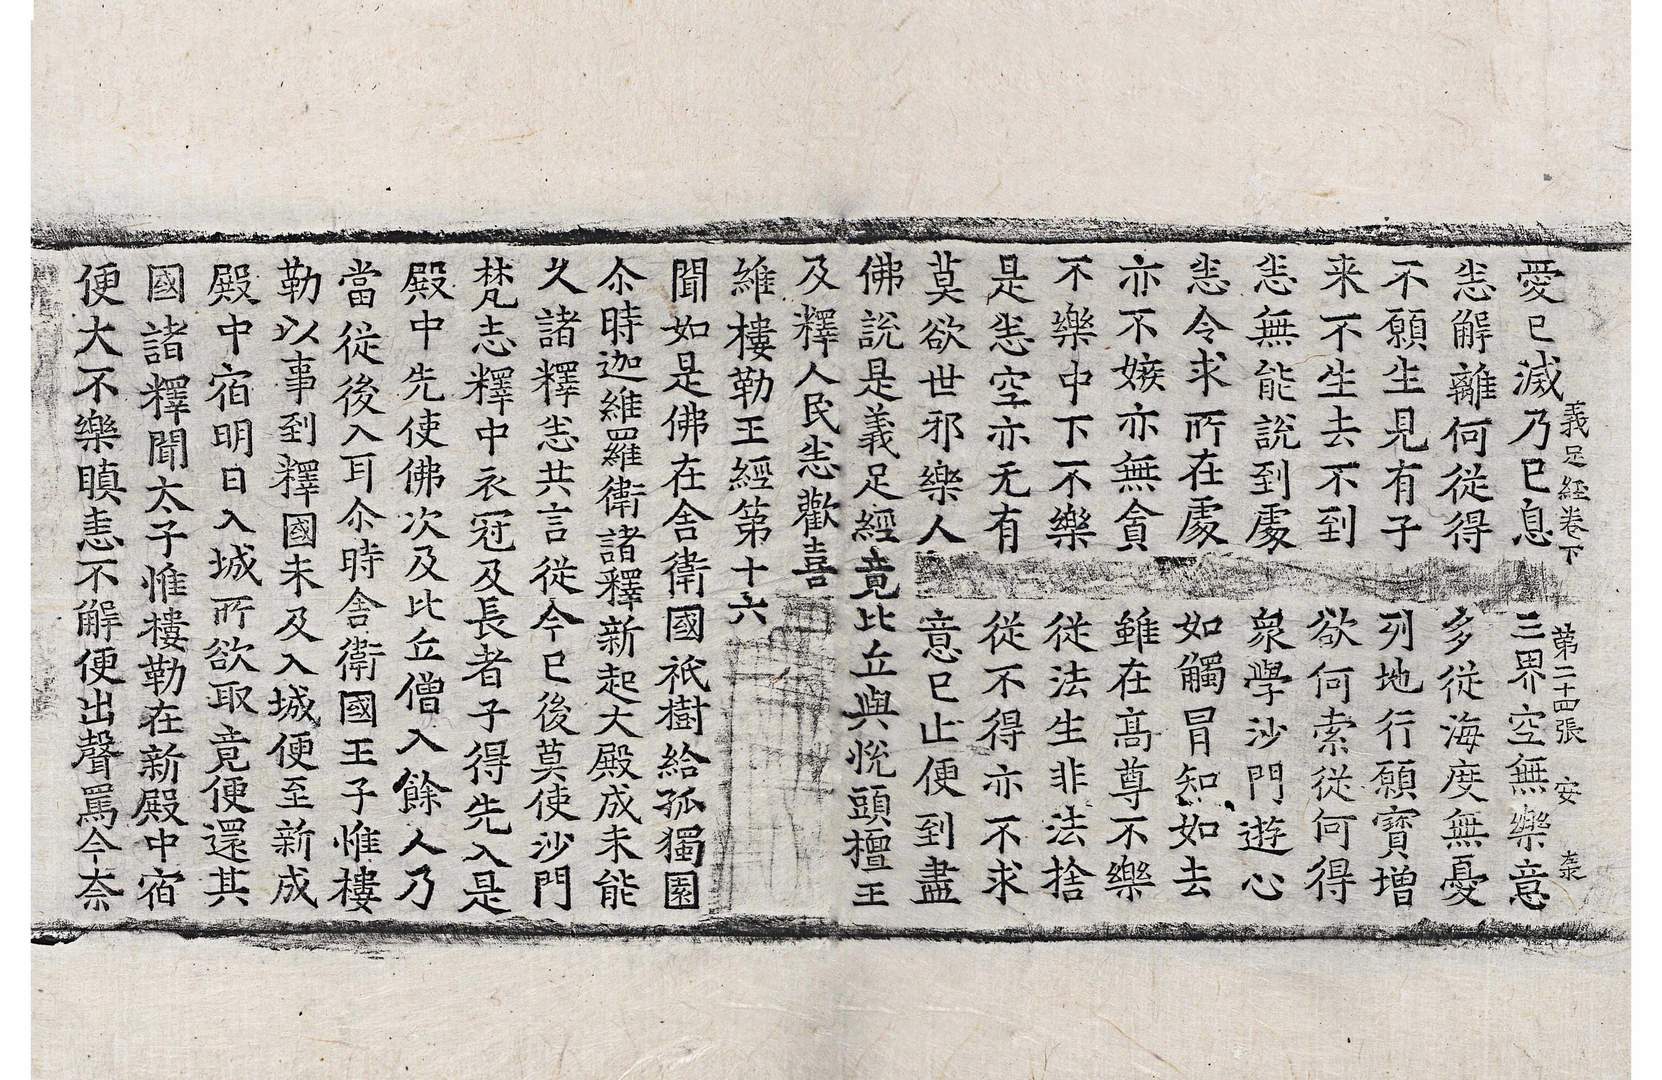 愛已滅乃已息　三界空無樂意
義足経卷下　第二十四張　安
恙解離何從得　多從海度無憂
不願生見有子　列地行願寶增
来不生去不到　欲何索從何得
恙無能說到處　衆學沙門遊心
恙令求所在處　如觸冒知如去
亦不嫉亦無貪　雖在高尊不樂
不樂中下不樂　從法生非法捨
是恙空亦无有　從不得亦不求
莫欲世邪樂人　意已止便到盡
佛說是義足經竟比丘與恱頭檀王
及釋人民恙歡喜
維樓勒王經第十六
聞如是佛在舍衛國祇樹給孤獨園
尒時迦維羅衛諸釋新起大殿成未能
久諸釋恙共言從今已後莫使沙門
梵志釋中衣冠及長者子得先入是
殿中先使佛次及比丘僧入餘人乃
當從後入耳尒時舍衛國王子惟樓
勒以事到釋國未及入城便至新成
殿中宿明日入城所欲取竟便還其
國諸釋聞太子惟樓勒在新殿中宿
便大不樂瞋恚不解便出聲罵今奈